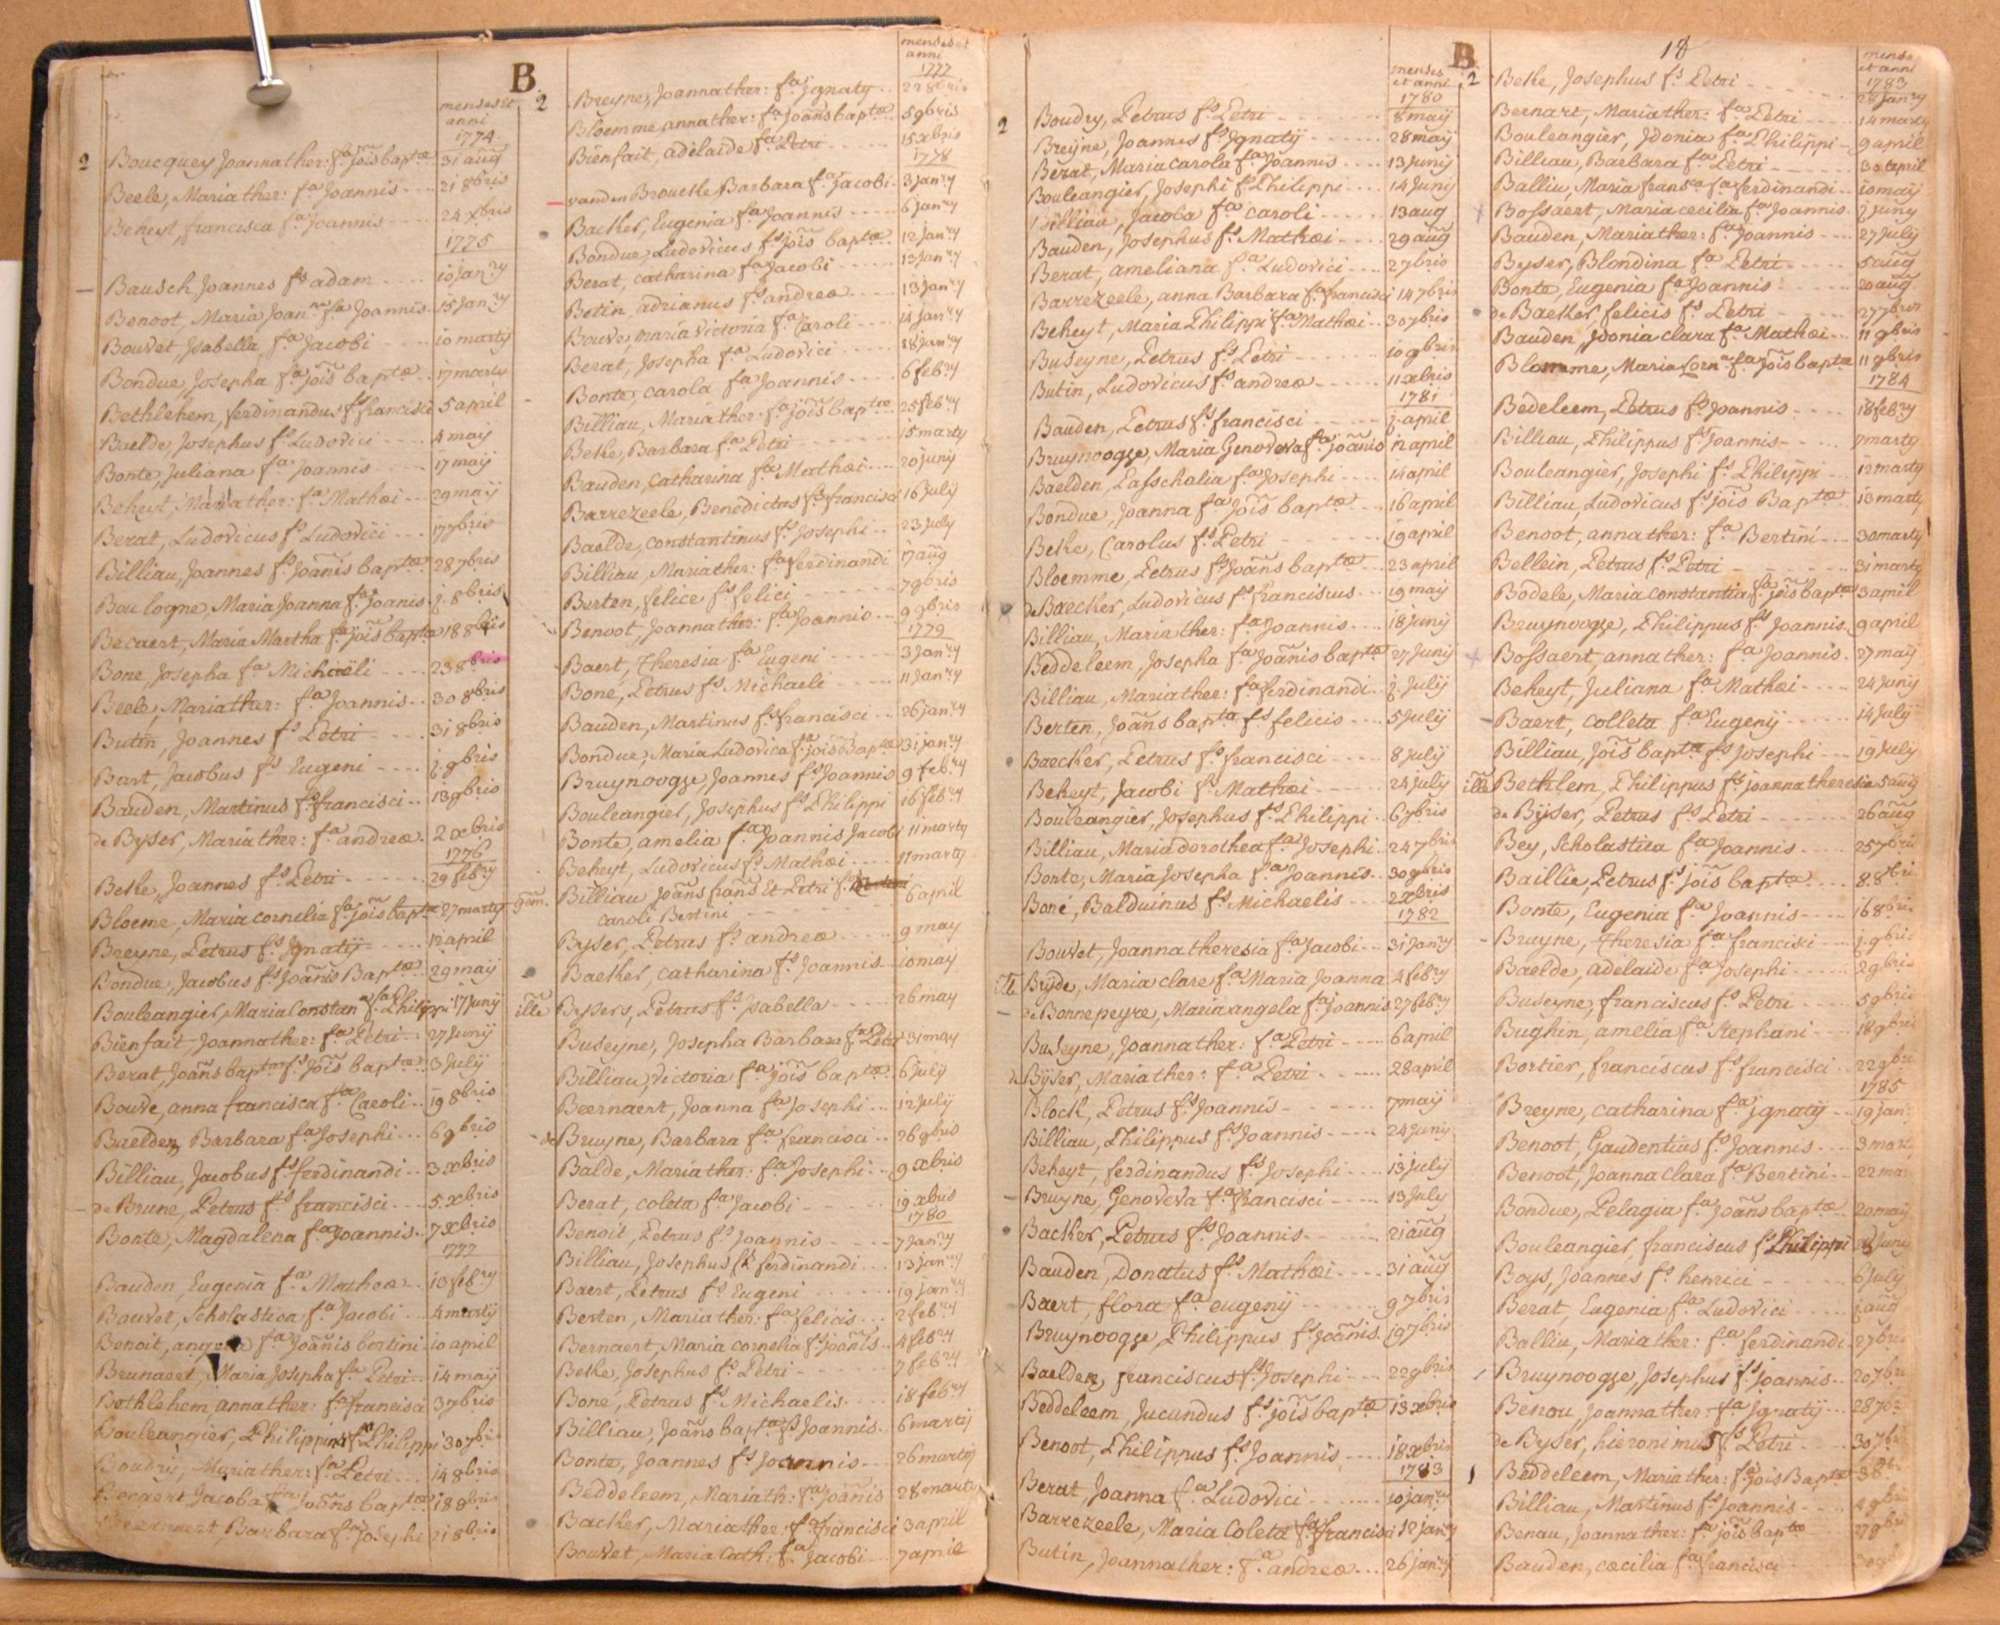 B.
menses et
anni
1774
2 Boucquey Joanna ther: fa jois baptæ 31 aug
Beele, Maria ther: fa Joannis 21 8bris
Beheyt, francisca fa Joannis 24 xbris
1775
Bausch, Joannes fs adam 10 Janry
Benoot, Maria Joanna fa Joannis 15 Janry
Bouvet, Isabella fa Jacobi 10 marty
Bondue, Josepha fa jois baptæ 17 marty
Bethlehem, ferdinandus fs francisci 5 april
Baelde, Josephus fs Ludovici 4 maij
Bonte, Juliana fa Joannis 17 maij
Beheyt, Maria ther: fa Mathæi 29 maij
Berat, Ludovicus fs Ludovici 17 7bris
Billiau, Joannes fs Joañis baptæ 28 7bris
Boulogne, Maria Joanna fa Joanis j. 8bris
Becaert, Maria Martha fa jois bapta 18 8bris
Bone, Josepha fa Michaëli 23 8bris
Beele, Maria ther: fa Joannis 30 8bris
Butin, Joannes fs Petri 31 8bris
Bart, Jacobus fs Eugeni j. 9bris
Bauden, Martinus fs francisci 13 9bris
de Byser, Maria ther: fa andreæ 2 xbris
1776
Beke, Joannes fs Petri 29 febry
Bloeme, Maria cornelia fa jois bapta 27 marty
Breyne, Petrus fs Ignatij 12 april
Bondue, Jacobus fs Joañis Baptæ 29 maij
Bouleangier, Maria Constan fa Philippi 17 Junij
Bienfait, Joanna ther: fa Petri 27 Junij
Berat, Joañs bapta fs jois baptæ 3 Julij
Bouve, anna francisca fa Caroli 19 8bris
Baelden, Barbara fa Josephi 6 9bris
Billiau, Jacobus fs ferdinandi 3 xbris
de Brune, Petrus fs francisci 5 xbris
Bonte, Magdalena fa Joannis 7 xbris
1777
Bauden, Eugenia fa Matheæ 13 febry
Bouvet, Scholastica fa Jacobi 4 martij
Benoit, fa Joañis bertini 10 april
Brunaert, Maria Josepha fa Petri 14 maij
Bethlehem, anna ther: fa francisci 3 7bris
Bouleangier, Philippus fs Philippi 30 7bris
Boudry, Maria ther: fa Petri 14 8bris
Jacoba fa Joañs baptæ 18 8bris
Barbara fa Josephi 21 8bris
menses et
anni
1777
2 Breyne, Joanna ther: fa Ignaty 22 8bris
Bloemme, anna ther: fa Joañs baptæ 5 9bris
Bienfait, adelaide fa Petri 15 xbris
1778
vanden Broucke, Barbara fa Jacobi 3 Janry
Backer, Eugenia fa Joannis 6 janry
Bondue, Ludovicus fs jois baptæ 12 Janry
Berat, catharina fa Jacobi 13 Janry
Botin, adrianus fs andreæ 13 Janry
Bauve, maria victoria fa Caroli 14 Janry
Berat, Josepha fa Ludovici 18 Janry
Bonte, carola fa Joannis 6 febry
Billiau, Maria ther: fa jois baptæ 25 febry
Beke, Barbara fa Petri 15 marty
Bauden, catharina fa Mathæi 20 juny
Barrezeele, Benedictus fs francisci 16 Julij
Baelde, constantinus fs Josephi 23 July
Billiau, Maria ther: fa ferdinandi 17 aug
Burten, felice fs felici 7 9bris
Benoot, Joanna ther: fa Joannis 9 9bris
1779
Baert, Theresia fa Eugeni 3 Janry
Bone, Petrus fs Michaeli 11 Janry
Bauden, Martinus fs francisci 26 janry
Bondue, Maria Ludovica fa jois Baptæ 31 janry
Bruynooge, Joannes fs Joannis 9 febry
Bouleangier, Josephus fs Philippi 16 febry
Bonte, amelia fa Joannis Jacobi 11 marty
Beheyt, Ludovicus fs Mathæi 17 marty
gem. Billiau Joañs frans et Petri fs 6 april
caroli Bertini
Byser, Petrus fs andreæ 9 may
Backer, catharina fs Joannis 10 may
ille Bysers, Petrus fs Isabella 26 may
Buseyne, Josepha Barbara fa Petri 31 may
Billiau, victoria fa jois baptæ 6 july
Beernaert, Joanna fa Josephi 12 July
de Bruyne, Barbara fa francisci 26 9bris
Balde, Maria ther: fa Josephi 9 xbris
Berat, coleta fa Jacobi 19 xbris
1780
Benoit, Petrus fs Joannis 7 Janry
Billiau, Josephus fs ferdinandi 13 janry
Baert, Petrus fs Eugeni 19 janry
Berten, Maria ther: fa felicis 2 febry
Bernaert, Maria cornelia fs joañis 4 febry
Beke, Josephus fs Petri 7 febry
Bone, Petrus fs Michaelis 18 febry
Billiau, Joañs bapta fs Joannis 6 martij
Bonte, Joannes fs Joannis 26 martij
Beddeleem, Maria th: fa Joañis 28 marty
Backer, Maria ther: fa francisci 3 april
Bouvet, Maria Cath. fa Jacobi 7 april
B
menses
et anni
1780
2 Boudry, Petrus fs Petri 8 maij
Breyne, Joannes fs Ignatij 28 maij
Berat, Maria carola fa Joannis 13 Junij
Bouleangier, Josephi fs Philippi 14 Junij
Billiau, Jacoba fa caroli 13 aug
Bauden, Josephus fs Mathæi 29 aug
Berat, ameliana fa Ludovici 2 7bris
Barrezeele, anna Barbara fa francisci 14 7bris
Beheyt, Maria Philippi fa Mathæi 30 7bris
Buseyne, Petrus fs Petri 10 9bris
Butin, Ludovicus fs andreæ 11 xbris
1781
Bauden, Petrus fs francisci j. april
Bruynooge, Maria Genoveva fa joañis 12 april
Baelden, Passchalia fa Josephi 14 april
Bondue, Joanna fa jois baptæ 16 april
Beke, Carolus fs Petri 19 april
Bloemme, Petrus fs Joañs baptæ 23 april
de Baecker, Ludovicus fs franciscus 19 maij
Billiau, Maria ther: fa Joannis 18 Junij
Beddeleem, Josepha fa Joañis bapta 27 Junij
Billiau, Maria ther: fa ferdinandi j. Julij
Berten, Joañs bapta fs felicis 5 July
Baecker, Petrus fs francisci 8 July
Beheyt, Jacobi fs Mathæi 24 july
Bouleangier, Josephus fs Philippi 6 7bris
Billiau, Maria dorothea fa Josephi 24 7bris
Bonte, Maria Josepha fa Joannis 30 9bris
Boné, Balduinus fs Michaelis 2 xbris
1782
Bouvet, Joanna theresia fa Jacobi 31 Janry
Bryde, Maria clare fa Maria Joanna 4 febry
de Bonnepeyre, Maria angela fa Joannis 27 febry
Buseyne, Joanna ther: fa Petri 6 april
de Byser, Maria ther: fa Petri 28 april
Block, Petrus fs Joannis 7 maij
Billiau, Philippus fs Joannis 24 Juny
Beheyt, ferdinandus fs Josephi 13 july
Bruyne, Genoveva fa francisci 13 July
Backer, Petrus fs Joannis 21 aug
Bauden, Donatus fs Mathæi 31 aug
Baert, flora fa eugenij 9 7bris
Bruynooge, Philippus fs joañis 19 7bris
Baelden, franciscus fs Josephi 22 9bris
Beddeleem, Jucundus fs jois baptæ 13 xbris
Benoot, Philippus fs Joannis 18 xbris
1783
Berat, Joanna fa Ludovici 10 janry
Barrezeele, Maria Coleta fa francisci 12 janry
Butin, Joanna ther: fa andreæ 26 janry
18
menses
et anni
1783
2 Beke, Josephus fs Petri 28 Janry
Bernart, Maria ther: fa Petri 14 marty
Bouleangier, Idonia fa Philippi 9 april
Billiau, Barbara fa Petri 30 april
Balliu, Maria fransca fa ferdinandi 10 maij
Bossaert, Maria cecilia fa Joannis j juny
Bauden, Maria ther: fa Joannis 27 July
Byser, Blondina fa Petri 5 aug
Bonte, Eugenia fa Joannis 20 aug
de Backer, felicis fs Petri 27 7bris
Bauden, Idonia clara fa Mathæi 11 9bris
Blomme, Maria Corn. fa jois baptæ 11 9bris
1784
Bedeleem, Petrus fs Joannis 18 febry
Billiau, Philippus fs Joannis 7 marty
Bouleangier, Josephi fs Philippi 12 marty
Billiau, Ludovicus fs jois Baptæ 13 marty
Benoot, anna ther: fa Bertini 30 marty
Bellein, Petrus fs Petri 31 marty
Bodele, Maria constantia fa jois baptæ 3 april
Bruynooge, Philippus fs Joannis 9 april
Bossaert, anna ther: fa Joannis 27 maij
Beheyt, Juliana fa Mathæi 24 juny
Baert, colleta fa Eugenij 14 July
Billiau, jois baptæ fs Josephi 19 july
ille Bethlem, Philippus fs joanna theresia 5 aug
de Byser, Petrus fs Petri 26 aug
Bey, Scholastica fa Joannis 25 7bris
Baillie, Petrus fs jois bapta 8 8bris
Bonte, Eugenia fa Joannis 16 8bris
Bruyne, Theresia fa francisci j. 9bris
Baelde, adelaide fa Josephi 2 9bris
Buseyne, franciscus fs Petri 5 9bris
Bughin, amelia fa Stephani 18 9bris
Bortier, franciscus fs francisci 22 9bris
1785
Breyne, catharina fa ignatij 19 jan
Benoot, Gaudentius fs Joannis 3 mart
Benoot, Joanna Clara fa Bertini 22 mar
Bondue, Pelagia fa Joañs baptæ 20 maij
Bouleangier, franciscus fs Philippi Juny
Boys, Joannes fs henrici 6 July
Berat, Eugenia fa Ludovici j aug
Balliu, Maria ther: fa ferdinandi 2 7bris
Bruynooge, Josephus fs joannis 20 7bris
Benou, Joanna ther: fa Ignatij 28 7bris
de Byser, hieronimus fs Petri 30 7bris
Beddeleem, Maria ther: fa jois Baptæ 3 8bris
Billiau, Martinus fs Joannis 4 9bris
Benau, Joanna ther: fa jois baptæ
Bauden, cæcilia fa francisci